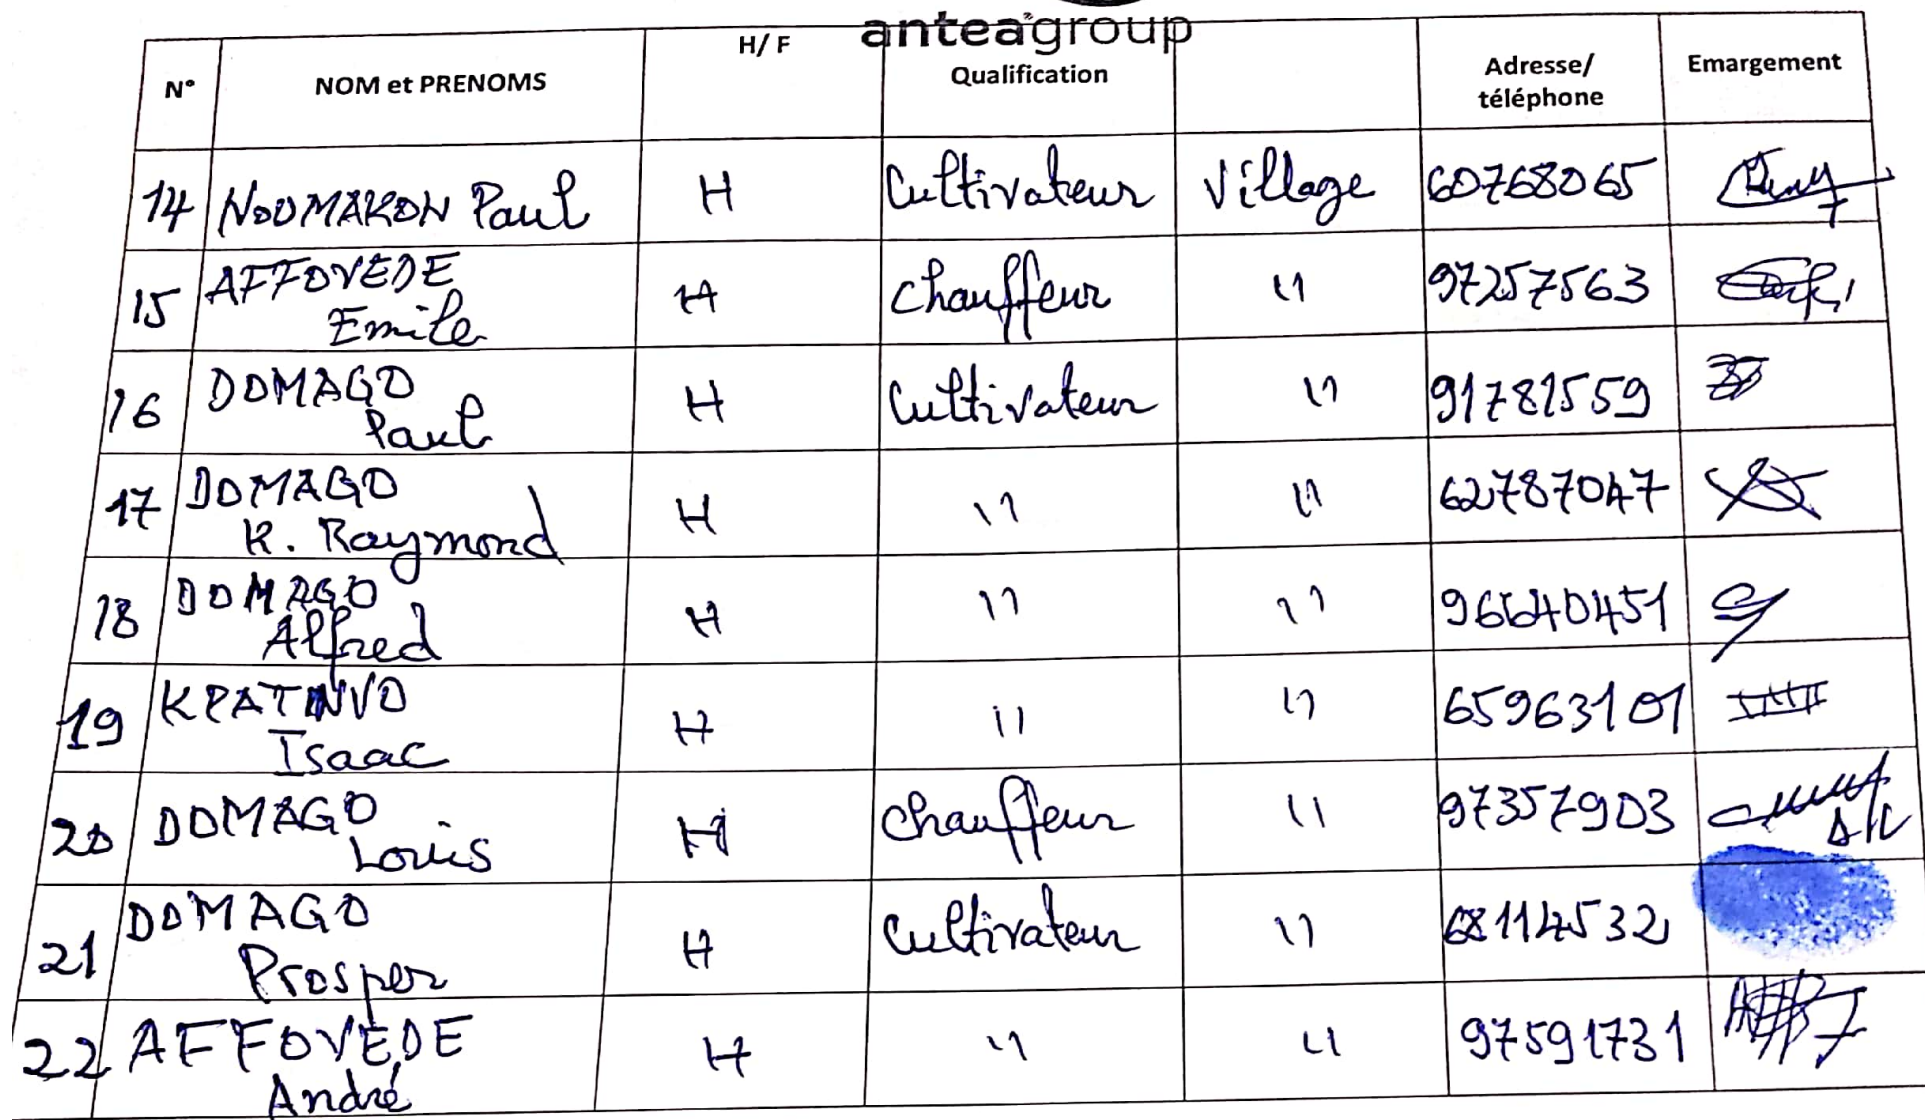 anteagroup
N° NOM et PRENOMS H/ F Qualification Adresse/ téléphone Emargement
14 NOUMAKON Paul H Cultivateur Village 60768065
15 AFFOVEDE Emile H Chauffeur " 97257563
16 DOMAGO Paul H Cultivateur " 91781559
17 DOMAGO K. Raymond H " " 62787047
18 DOMAGO Alfred H " "
19 KPATINVO Isaac H " " 65963101
20 DOMAGO Louis H Chauffeur " 97357903
21 DOMAGO Prosper H Cultivateur " 68114532
22 AFFOVEDE André H " " 97591731